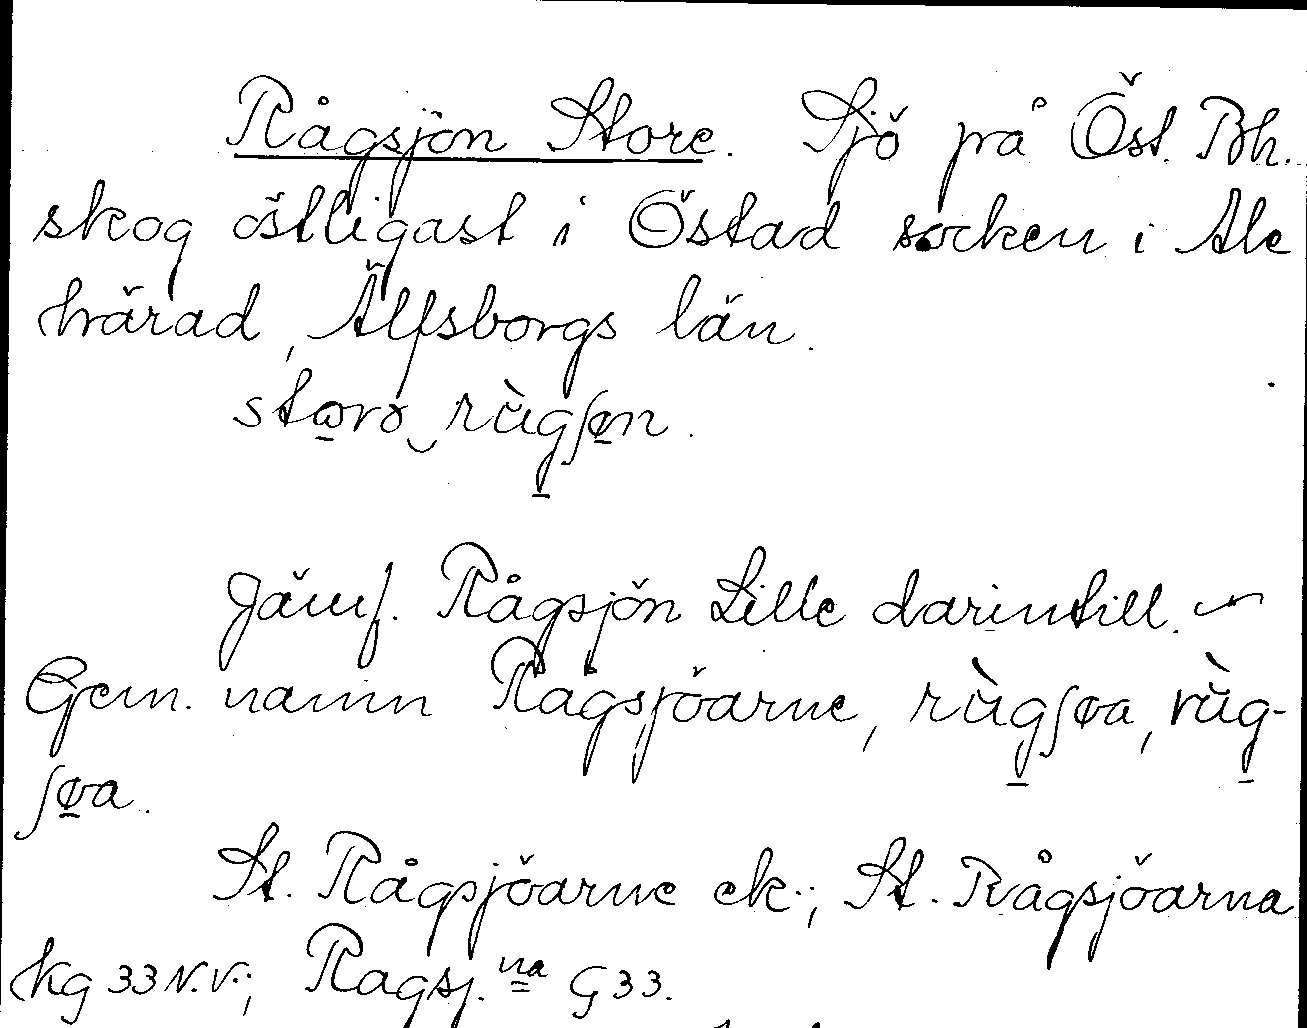 Rågsjön Store. Sjö på Öst. Bh.
skog östligast i Östad socken i Ale
härad, Älfsborgs län.
storo rùgʃøn.
Jämf. Rågsjön Lille darintill. ~
Gem. namn Rågsjöarne, rùgʃøa, rùg-
ʃøa.
St. Rågsjöarne ek.; St. Rågsjöarna
kg 33 N.V.; Ragsj. na G 33.